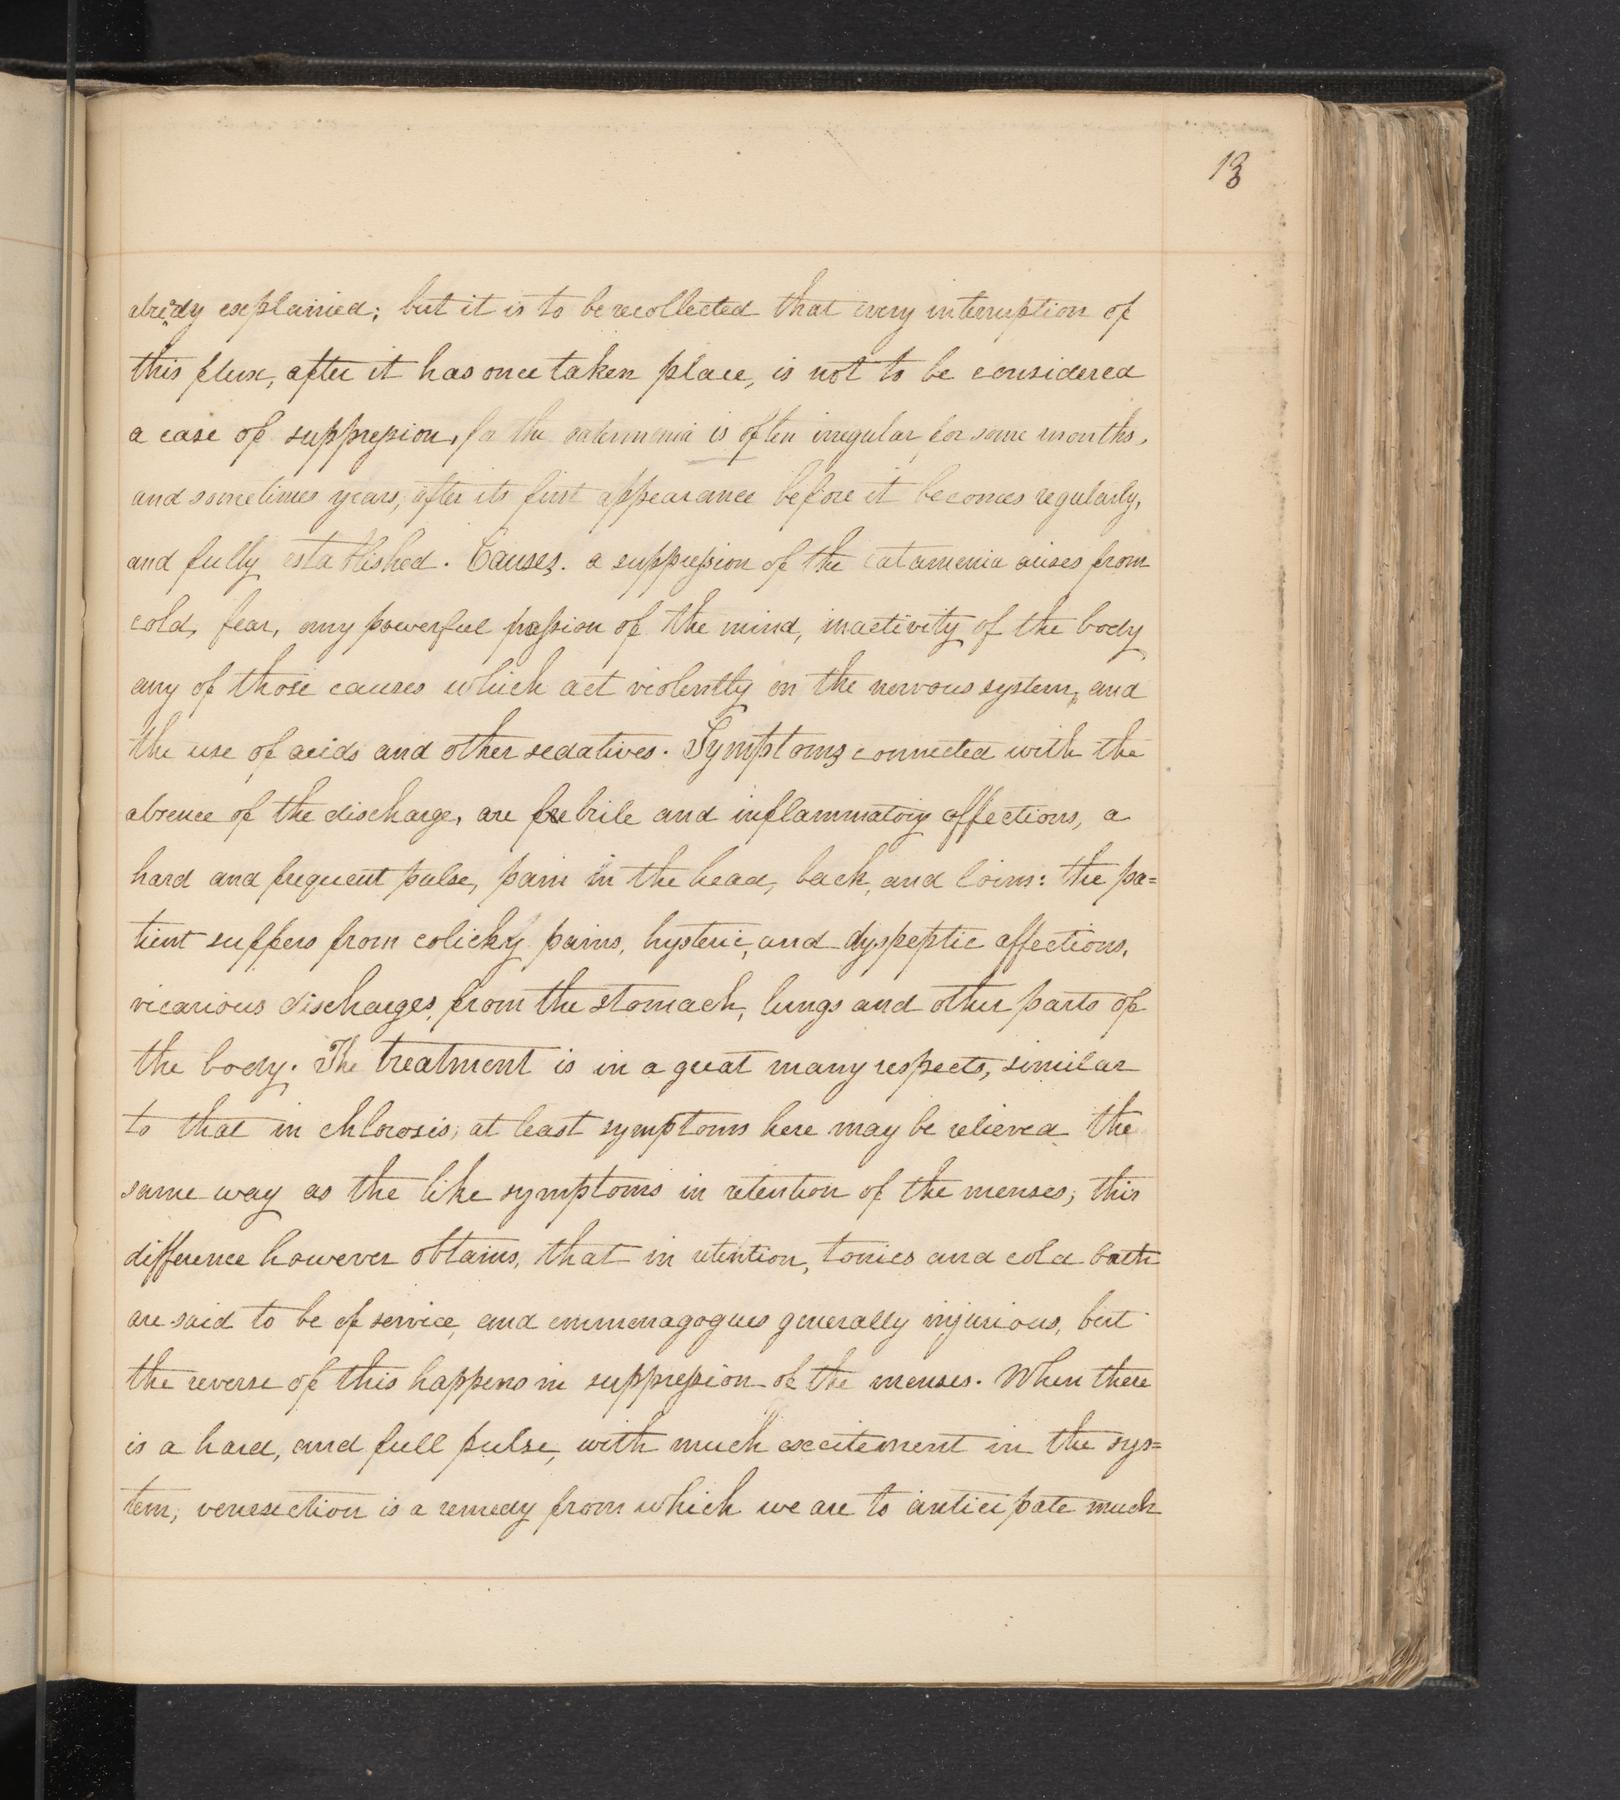 13
alredy explained; but it is to be recollected that every interruption of
this flux, after it has once taken place, is not to be considered
a case of suppression, for the catermenia is often irregular for some months,
and sometimes years, after its first appearance before it becomes regularly,
and fully established. Causes. a suppression of the catamenia arises from
cold, fear, any powerful passion of the mind, inactivity of the body
any of those causes which act violently on the nervous system, and
the use of acids and other sedatives. Symptoms connected with the
absence of the discharge, are febrile and inflammatory affections, a
hard and frequent pulse, pain in the head, back, and loins: the pa=
tient suffers from colicky pains, hysteric, and dyspeptic affections,
vicarious discharges, from the stomach, lungs and other parts of
the body. The treatment is in a great many respects, similar
to that in chlorosis; at least symptoms here may be relieved the
same way as the like symptoms in retention of the menses; this
difference however obtains, that in retention, tonics and cold bath
are said to be of service, and emmenagogues generally injurious, but
the reverse of this happens in suppression of the menses. When there
is a hard, and full pulse, with much excitement in the sys=
tem; venesection is a remedy from which we are to anticipate much